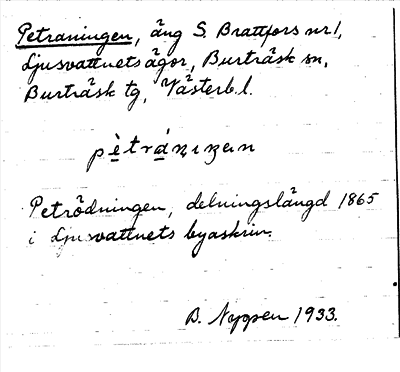 Petraningen, äng S. Brattfors nr 1,
Ljusvattnets ägor, Burträsk sn,
Burträsk tg, Västerb. l.
Petrödningen, delningslängd 1865
i Ljusvattnets byaskrin.
B. Nyppen 1933.